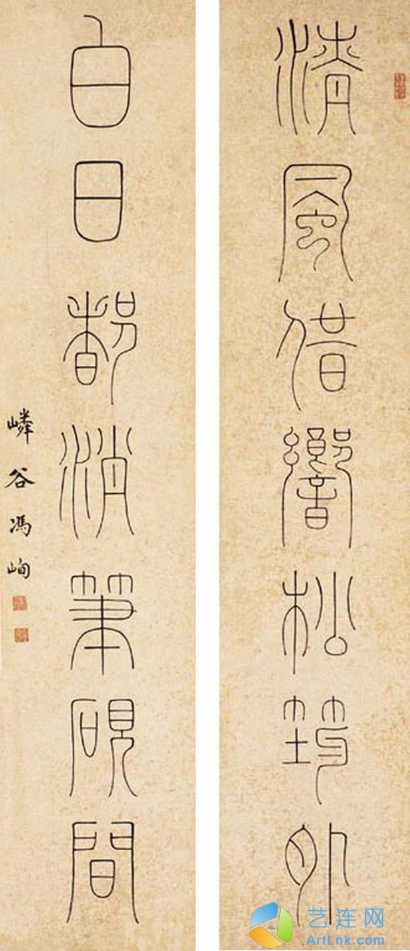 清風借響松筠外
白日都消筆硯間
嶙谷馮峋
艺连网
ArtLnk.com